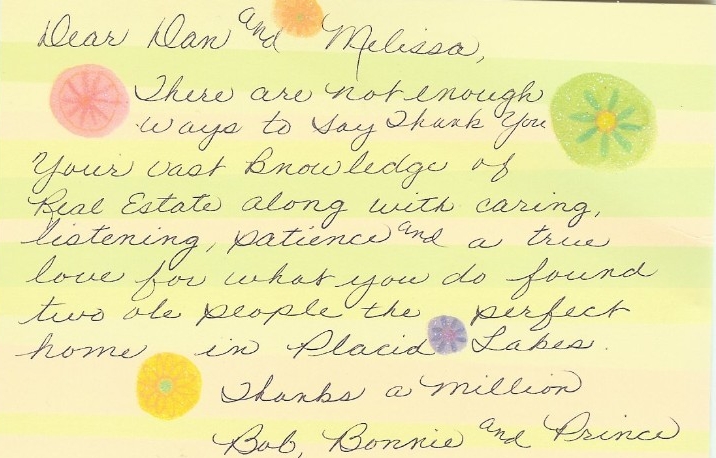 Dear Dan and Melissa,
There are not enough
ways to say Thank You
Your vast knowledge of
Real Estate along with caring,
listening, patience and a true
love for what you do found
two ole people the perfect
home in Placid Lakes.
Thanks a million
Bob, Bonnie and Prince